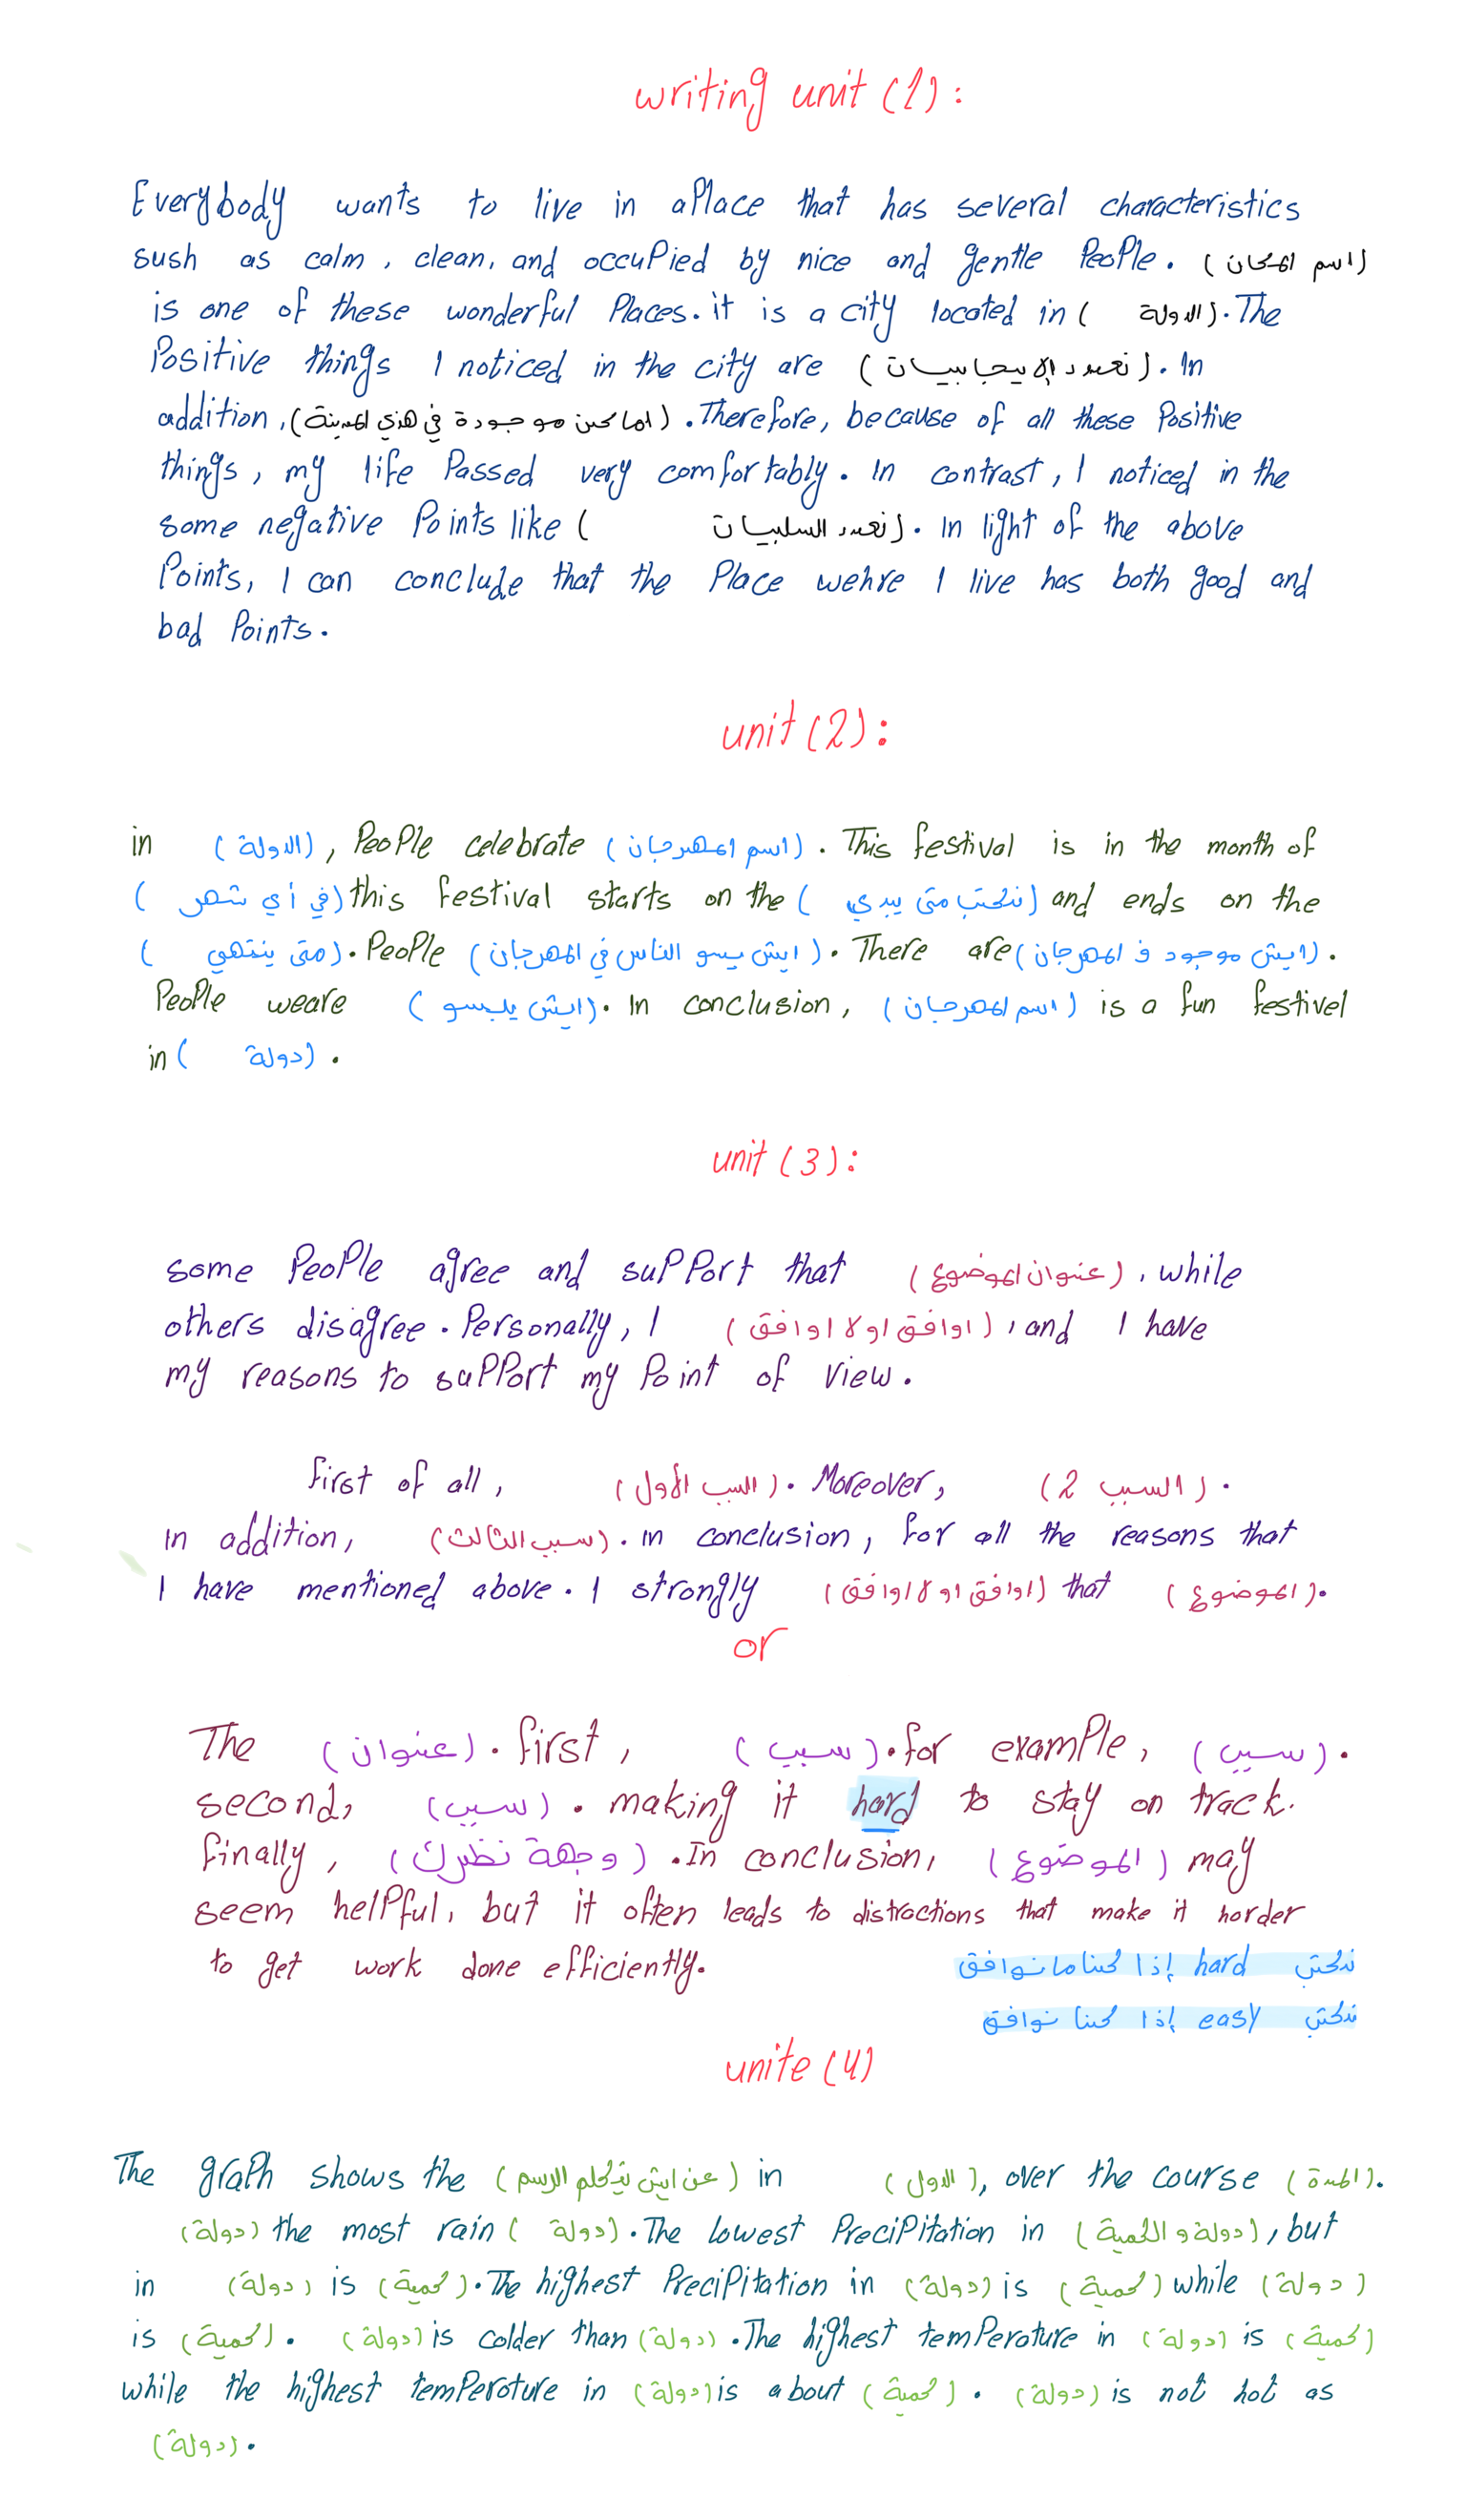 writing unit (1) :
Everybody wants to live in aPlace that has several characteristics
sush as calm , clean, and occupied by nice and gentle People. (اسم المكان)
is one of these wonderful Places. it is a city located in ( الدولة). The
Positive things I noticed in the city are (نعدد الايجابيات). In
addition, (اماكن موجودة في هذي المدينة). Therefore, because of all these Positive
things, my life Passed very comfortably. In contrast, I noticed in the
some negative Points like ( نعدد السلبيات). In light of the above
Points, I can conclude that the Place wehre I live has both good and
bad Points.
unit (2) :
in (الدولة), People celebrate (اسم المهرجان). This festival is in the month of
(في أي شهر) this festival starts on the (نكتب متى يبدي) and ends on the
(متى ينتهي). People (ايش يسو الناس في المهرجان). There are (ايش موجود ف المهرجان).
People weare (ايش يلبسو). In conclusion, (اسم المهرجان) is a fun festivel
in ( دولة) .
unit (3) :
some People agree and support that (عنوان الموضوع), while
others disagree. Personally, I (اوافق او لا اوافق), and I have
my reasons to support my Point of view.
first of all, (السبب الأول). Moreover, (السبب 2).
In addition, (سبب الثالث). in conclusion, for all the reasons that
I have mentioned above. I strongly (اوافق او لا اوافق) that (الموضوع).
or
The (عنوان). first, (سبب). for example, (سبب).
second, (سبب). making it hard to stay on track.
finally, (وجهة نظرك). In conclusion, (الموضوع) may
seem helpful, but it often leads to distractions that make it harder
to get work done efficiently.
نكتب hard إذا كنا ما نوافق
نكتب easy إذا كنا نوافق
unite (4)
The graph shows the (عن ايش يتكلم الرسم) in (الدول), over the course (المدة).
(دولة) the most rain ( دولة). The lowest Precipitation in (دولة و الكمية), but
in (دولة) is (كمية). The highest Precipitation in (دولة) is (كمية) while (دولة)
is (كمية). (دولة) is colder than (دولة). The highest temperature in (دولة) is (كمية)
while the highest temperoture in (دولة) is about (كمية). (دولة) is not hot as
(دولة).